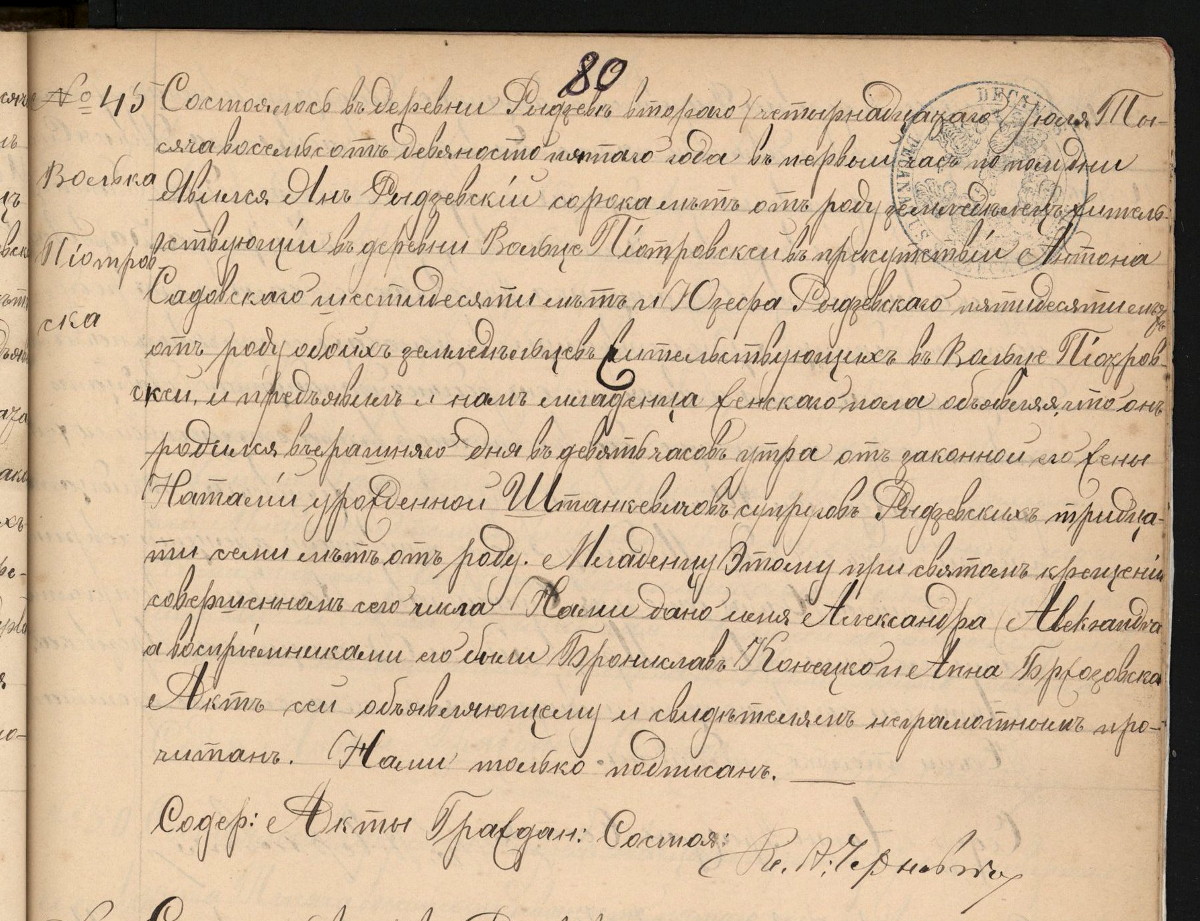 80
№ 45 Состоялось въ деревни Рыдзевъ второго (четырнадцатаго Іюля Ты-
сяча восемьсотъ девяносто пятаго года въ первый часъ по полудни
Волька
Явился Янъ Рыдзевскій сорока лѣтъ отъ роду земледѣлецъ житель-
ствующій въ деревни Вольце Піотровскей въ присутствіи Антона
Піотров
Садовскаго шестидесяти лѣтъ и Юзефа Рыдзевскаго пятидесяти лѣтъ
ска
отъ роду обоихъ земледѣльцевъ жительствующихъ въ Вольце Піотров-
скей, и предъявилъ намъ младенца женскаго пола объявляя, что онъ
родился вчерашняго дня въ девять часовъ утра отъ законной его жены
Наталіи урожденной Штанкевичовъ супруговъ Рыдзевскихъ тридца-
ти семи лѣтъ отъ роду. Младенцу Этому при святомъ крещеніи
совершенномъ сего числа Нами дано имя Александра (Aleksandra
а воспріемниками его были Брониславъ Конецко и Анна Бржозовска
Актъ сей объявляющему и свидѣтелямъ неграмотнымъ про-
читанъ. Нами только подписанъ.
Содер: Акты Граждан: Состоя:
Кс. А.